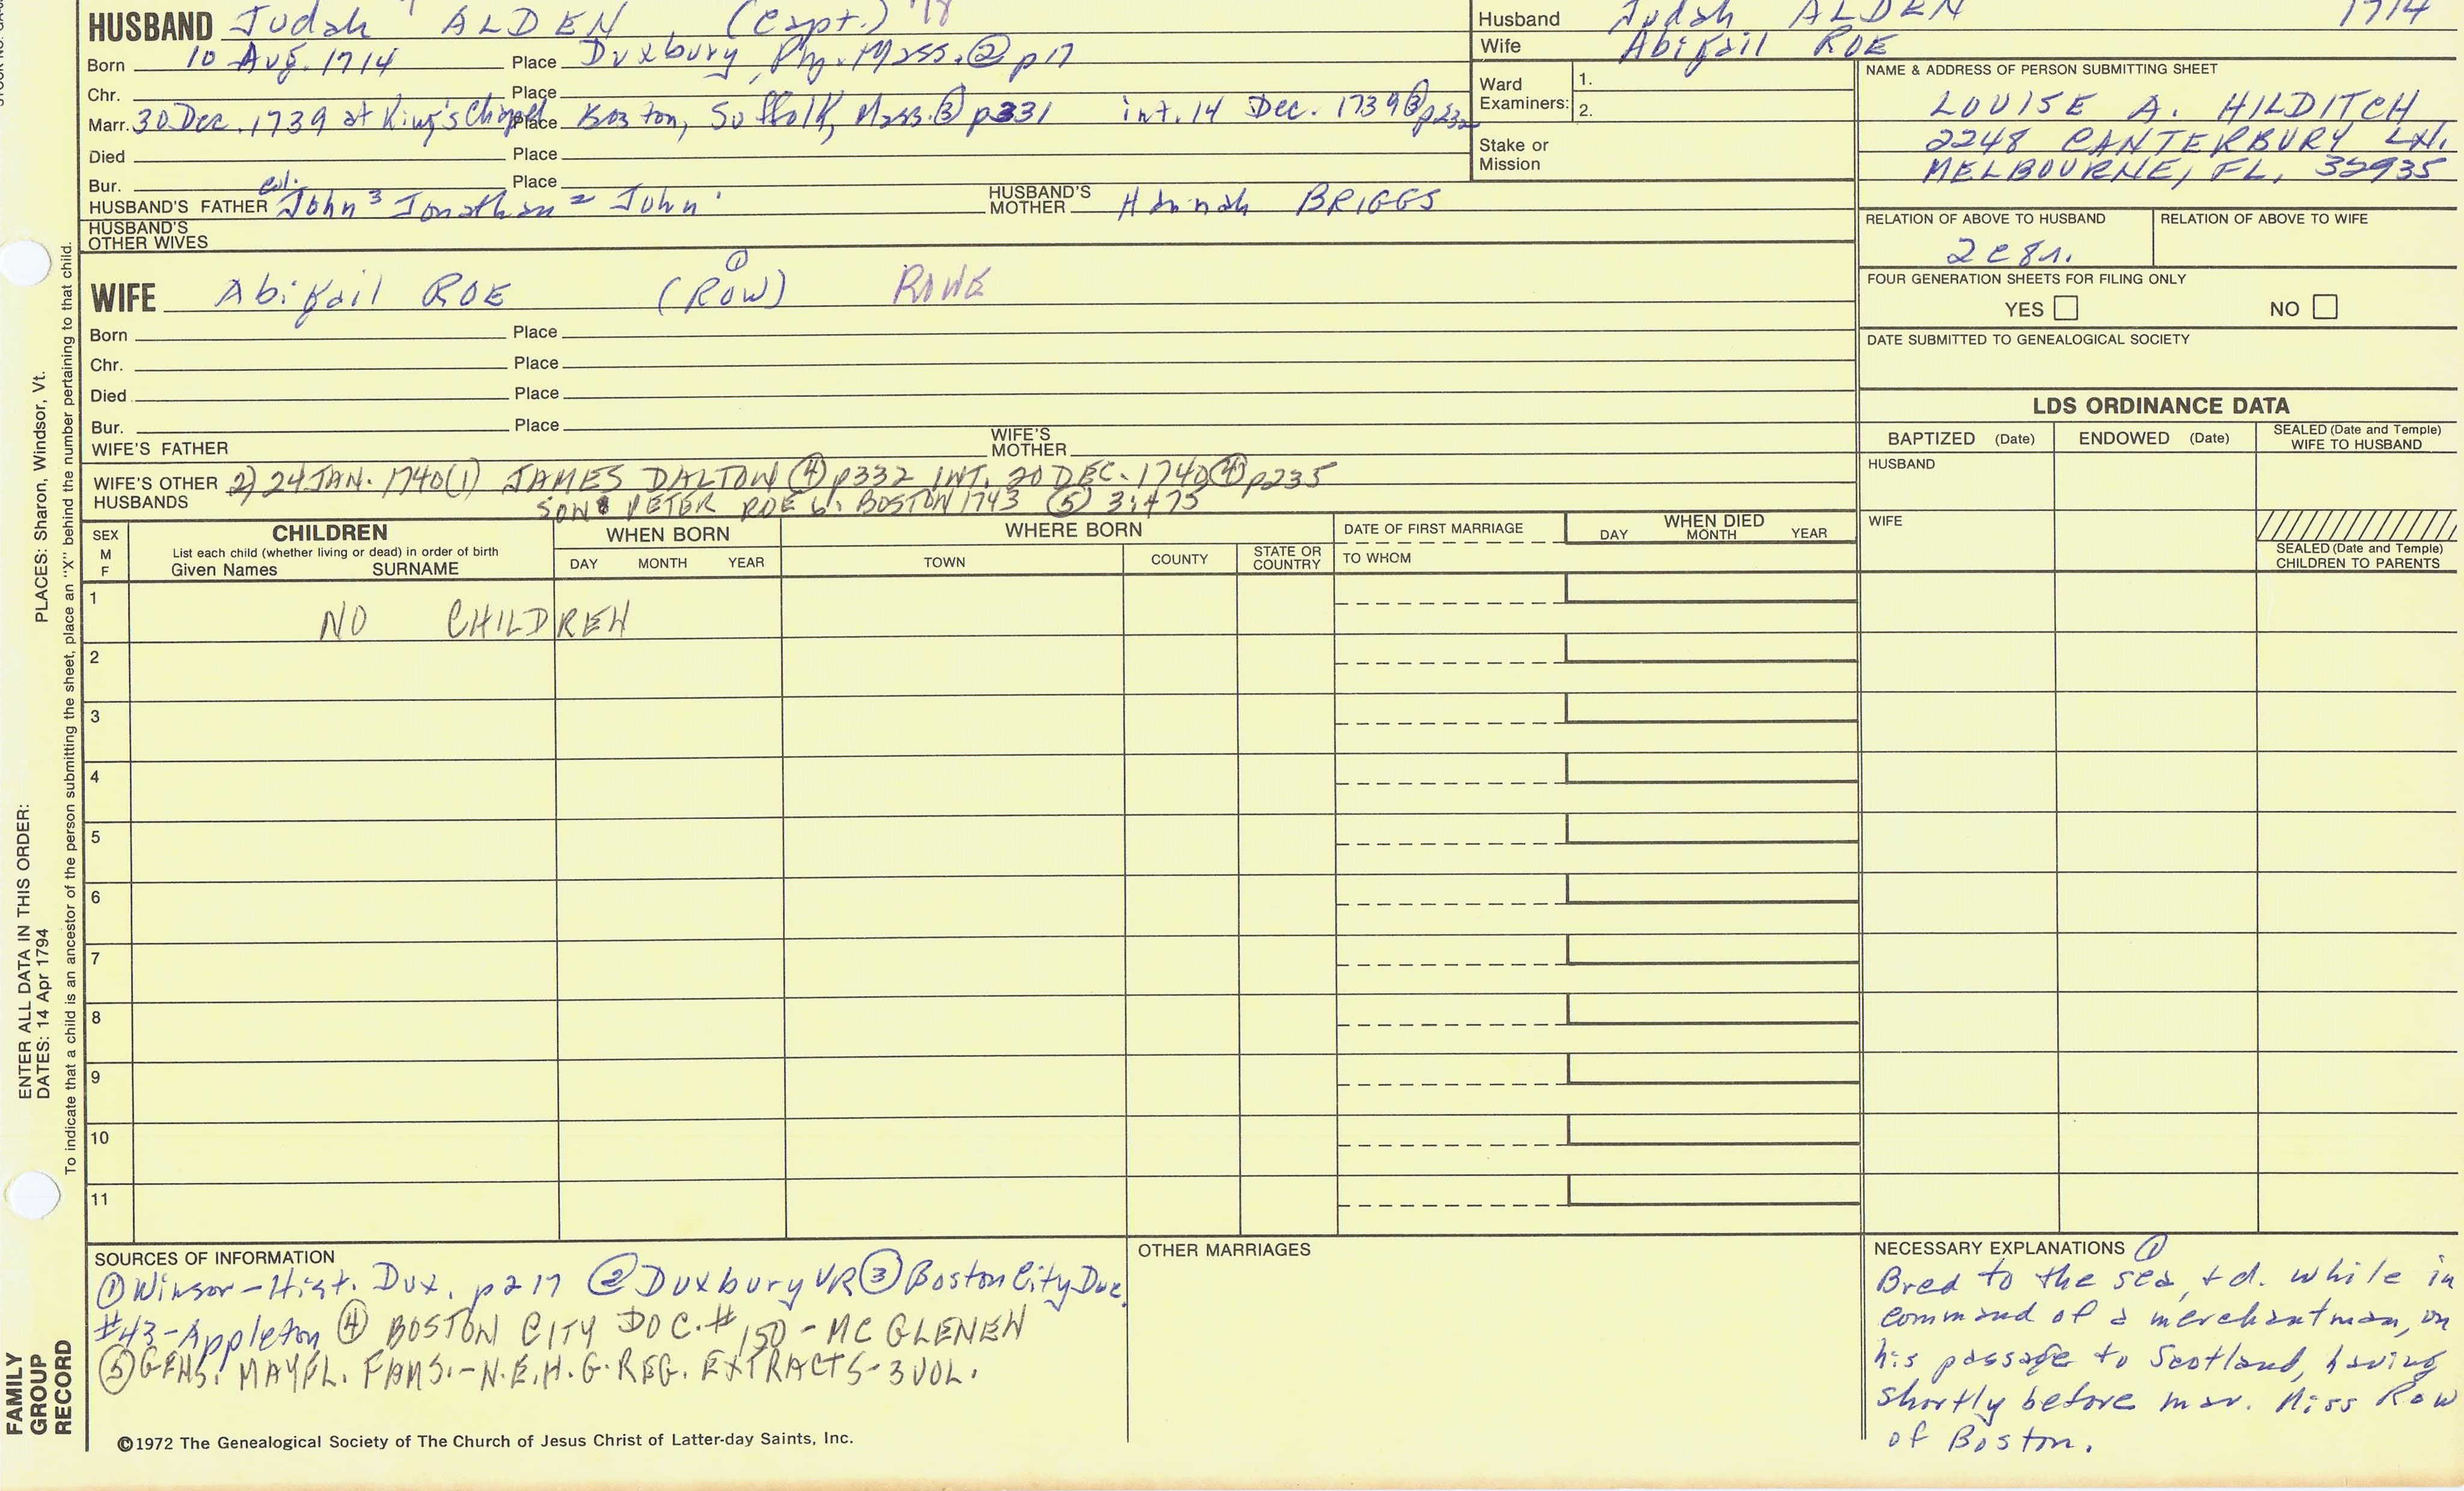 HUSBAND Judah ALDEN (Capt.) '18
Husband Judah ALDEN 1714
Wife Abigail ROE
Born 10 Aug. 1714 Place Duxbury, Ply. Mass. ② p17
Chr. Place
Marr. 30 Dec. 1739 at King's Chapel Place Boston, Suffolk, Mass. ③ p331 int. 14 Dec. 1739 ③ p232
Died Place
Bur. Place
Ward Examiners: 1. 2.
Stake or Mission
NAME & ADDRESS OF PERSON SUBMITTING SHEET
LOUISE A. HILDITCH
2248 CANTERBURY LN.
MELBOURNE, FL, 32935
HUSBAND'S FATHER Col. John ³ Jonathan ² John ¹ HUSBAND'S MOTHER Hannah BRIGGS
HUSBAND'S OTHER WIVES
RELATION OF ABOVE TO HUSBAND RELATION OF ABOVE TO WIFE
FOUR GENERATION SHEETS FOR FILING ONLY
YES NO
DATE SUBMITTED TO GENEALOGICAL SOCIETY
WIFE Abigail ROE (ROW) ① ROWE
Born Place
Chr. Place
Died Place
Bur. Place
WIFE'S FATHER WIFE'S MOTHER
WIFE'S OTHER HUSBANDS 2) 24 JAN. 1740(1) JAMES DALTON ④ p332 INT. 20 DEC. 1740 ④ p235
SON PETER ROE b. BOSTON 1743 ⑤ 3:475
LDS ORDINANCE DATA
BAPTIZED (Date) ENDOWED (Date) SEALED (Date and Temple) WIFE TO HUSBAND
HUSBAND
WIFE
SEALED (Date and Temple) CHILDREN TO PARENTS
SEX M F
CHILDREN
List each child (whether living or dead) in order of birth
Given Names SURNAME
WHEN BORN
DAY MONTH YEAR
WHERE BORN
TOWN COUNTY STATE OR COUNTRY
DATE OF FIRST MARRIAGE
TO WHOM
WHEN DIED
DAY MONTH YEAR
1 NO CHILDREN
2
3
4
5
6
7
8
9
10
11
SOURCES OF INFORMATION
① Winsor-Hist. Dux. p217 ② Duxbury VR ③ Boston City Doc.
#43-Appleton ④ BOSTON CITY DOC. # 150 - MC GLENEN
⑤ GENS. MAYFL. FAMS. - N.E.H.G. REG. EXTRACTS - 3 VOL.
OTHER MARRIAGES
NECESSARY EXPLANATIONS ①
Bred to the sea, + d. while in
command of a merchantman, on
his passage to Scotland, having
shortly before mar. Miss Row
of Boston.
©1972 The Genealogical Society of The Church of Jesus Christ of Latter-day Saints, Inc.
FAMILY GROUP RECORD
ENTER ALL DATA IN THIS ORDER:
DATES: 14 Apr 1794
PLACES: Sharon, Windsor, Vt.
To indicate that a child is an ancestor of the person submitting the sheet, place an "X" behind the number pertaining to that child.